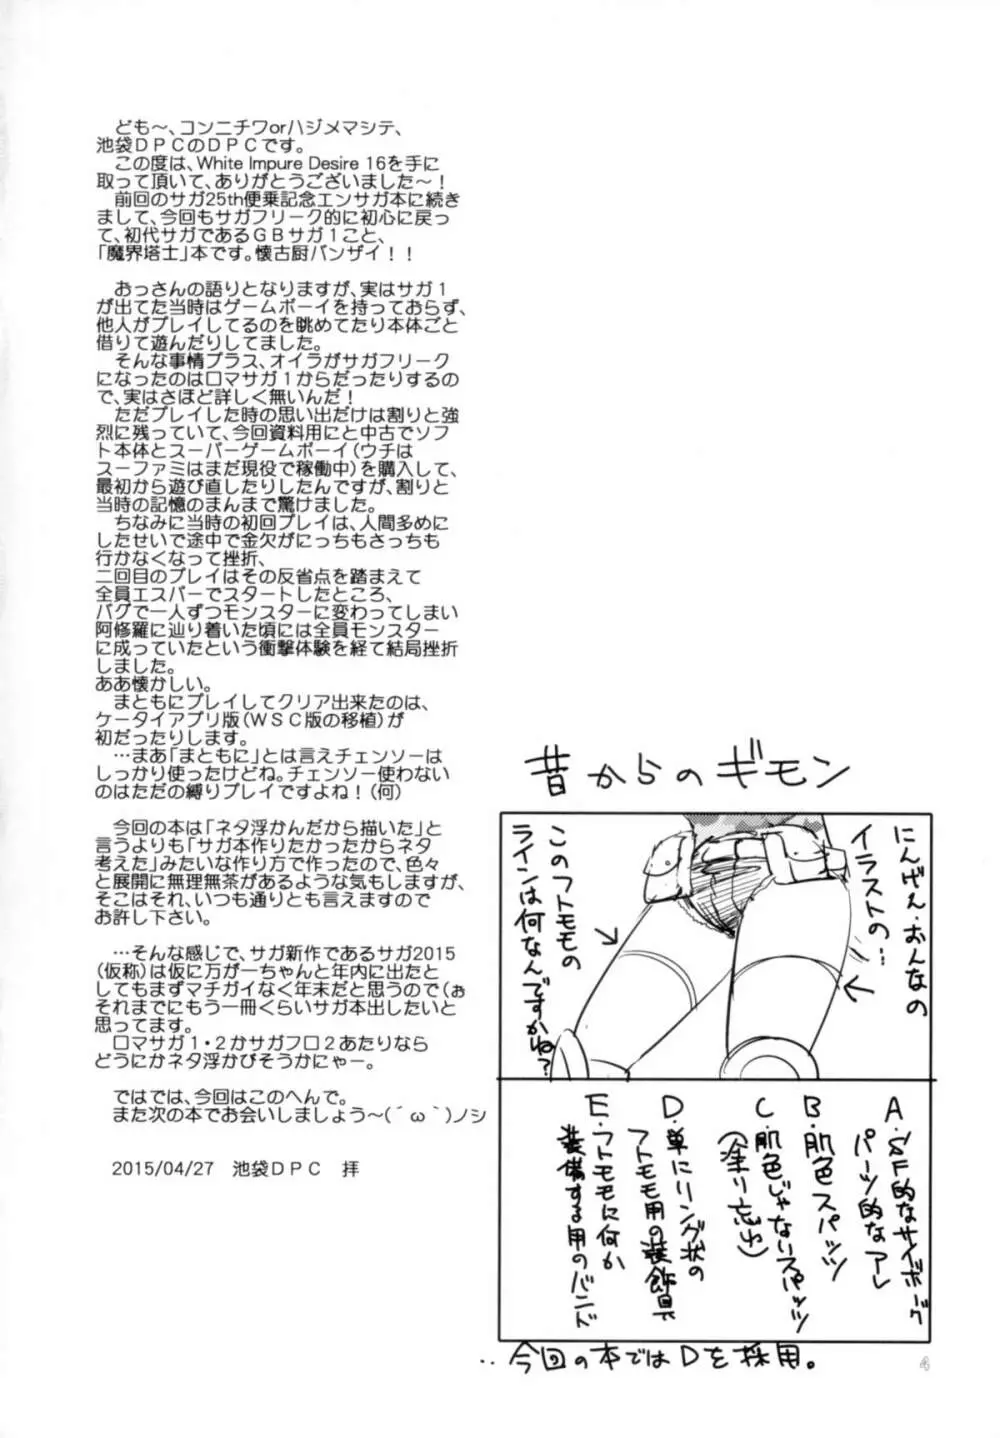 ども～、コンニチワorハジメマシテ、
池袋ＤＰＣのＤＰＣです。
この度は、White Impure Desire 16を手に
取って頂いて、ありがとうございました～！
前回のサガ25th便乗記念エンサガ本に続き
まして、今回もサガフリーク的に初心に戻っ
て、初代サガであるＧＢサガ１こと、
「魔界塔士」本です。懐古厨バンザイ！！
おっさんの語りとなりますが、実はサガ１
が出てた当時はゲームボーイを持っておらず、
他人がプレイしてるのを眺めてたり本体ごと
借りて遊んだりしてました。
そんな事情プラス、オイラがサガフリーク
になったのはロマサガ１からだったりするの
で、実はさほど詳しく無いんだ！
ただプレイした時の思い出だけは割りと強
烈に残っていて、今回資料用にと中古でソフ
ト本体とスーパーゲームボーイ（ウチは
スーファミはまだ現役で稼働中）を購入して、
最初から遊び直したりしたんですが、割りと
当時の記憶のまんまで驚けました。
ちなみに当時の初回プレイは、人間多めに
したせいで途中で金欠がにっちもさっちも
行かなくなって挫折、
二回目のプレイはその反省点を踏まえて
全員エスパーでスタートしたところ、
バグで一人ずつモンスターに変わってしまい
阿修羅に辿り着いた頃には全員モンスター
に成っていたという衝撃体験を経て結局挫折
しました。
ああ懐かしい。
まともにプレイしてクリア出来たのは、
ケータイアプリ版（ＷＳＣ版の移植）が
初だったりします。
…まあ「まともに」とは言えチェンソーは
しっかり使ったけどね。チェンソー使わない
のはただの縛りプレイですよね！（何）
今回の本は「ネタ浮かんだから描いた」と
言うよりも「サガ本作りたかったからネタ
考えた」みたいな作り方で作ったので、色々
と展開に無理無茶があるような気もしますが、
そこはそれ、いつも通りとも言えますので
お許し下さい。
…そんな感じで、サガ新作であるサガ2015
（仮称）は仮に万が一ちゃんと年内に出たと
してもまずマチガイなく年末だと思うので（ぉ
それまでにもう一冊くらいサガ本出したいと
思ってます。
ロマサガ１・２かサガフロ２あたりなら
どうにかネタ浮かびそうかにゃー。
ではでは、今回はこのへんで。
また次の本でお会いしましょう～(´ω｀)ノシ
2015/04/27　池袋ＤＰＣ　拝
昔からのギモン
にんげん・おんなの
イラストの…
このフトモモの
ラインは何なんですかね？
A.SF的なサイボーグ
パーツ的なアレ
B.肌色スパッツ
C.肌色じゃないスパッツ
（塗り忘れ）
D.単にリング状の
フトモモ用の装飾具
E.フトモモに何か
装備する用のバンド
‥今回の本ではDを採用。
4